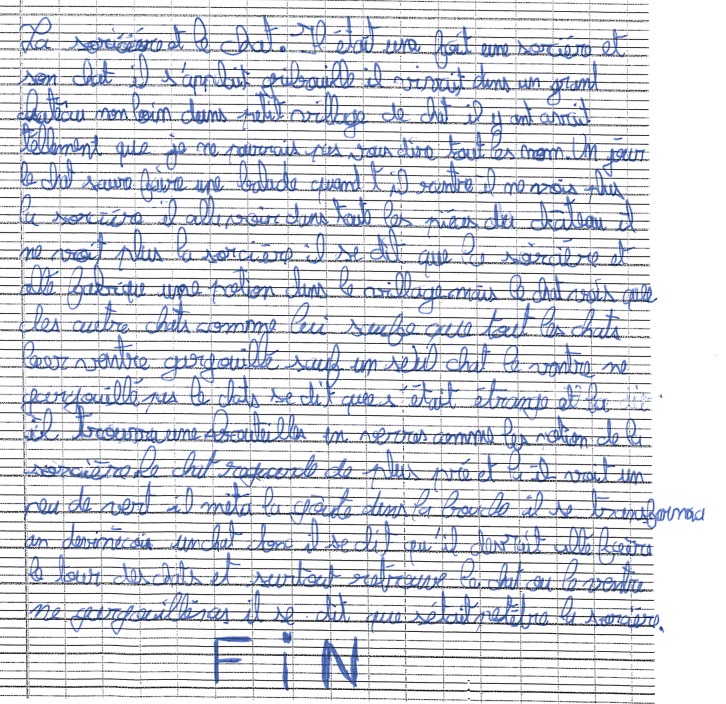 La sorcière et le chat. Il était une foit une sorcière et
son chat il s'applait gribouille il vivait dans un grand
château non loin dans petit village de chat il y ant avait
tellement que je ne pourrais pas vous dire tout les nom. Un jour
le chat sauva faire une balade quand t'il rentre il ne vois plus
la sorcière il alla voir dans tout les pièces du château il
ne voit plus la sorcière il se dit que la sorcière et
allé fabrique une potion dans le village mais le chat vois que
des autre chats comme lui saufe que tout les chats
leer ventre gargouille sauf un seul chat le ventre ne
gargouillé pas le chats se dit que s'était étrange et la
il trouva une bouteilles en verres comme les potion de la
sorcière le chat regarde de plus prée et là il voit un
peu de vert il méta la goute dans la bouche il se transforma
en un chat donc il se dit qu'il devrait allé faire
le tour des chats et surtout retrouve le chat ou le ventre
ne gargouille pas il se dit que s'était petêtre la sorcière.
FiN